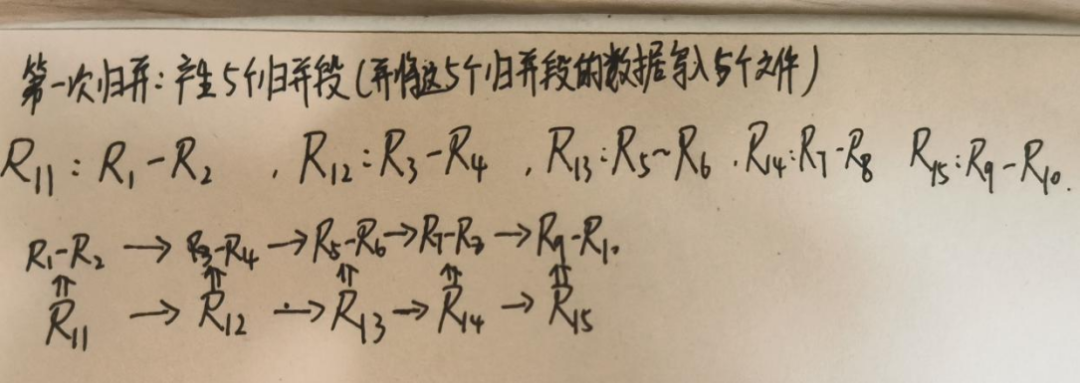 第一次归并：产生5个归并段（并将这5个归并段的数据写入5个文件）
R11：R1-R2 ，R12：R3-R4 ，R13：R5~R6 ，R14：R7-R8 R15：R9-R10.
R1-R2 → R3-R4 → R5-R6 → R7-R8 → R9-R10
⇑ ⇑ ⇑ ⇑ ⇑
R11 → R12 → R13 → R14 → R15